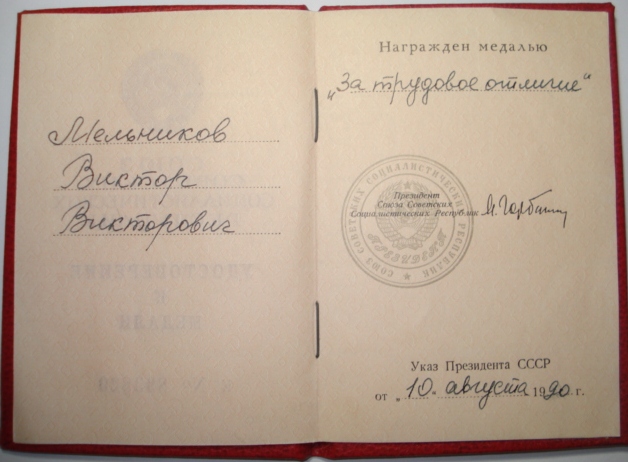 Мельников
Виктор
Викторович
Награжден медалью
„За трудовое отличие“
СОЮЗ СОВЕТСКИХ СОЦИАЛИСТИЧЕСКИХ РЕСПУБЛИК
ПРЕЗИДЕНТ
Президент
Союза Советских
Социалистических Республик
Указ Президента СССР
от „10. августа 1990 г.